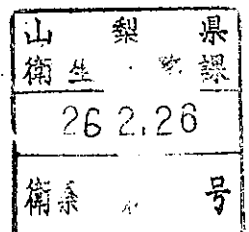 山梨県
衛生・課
26 2.26
衛 号